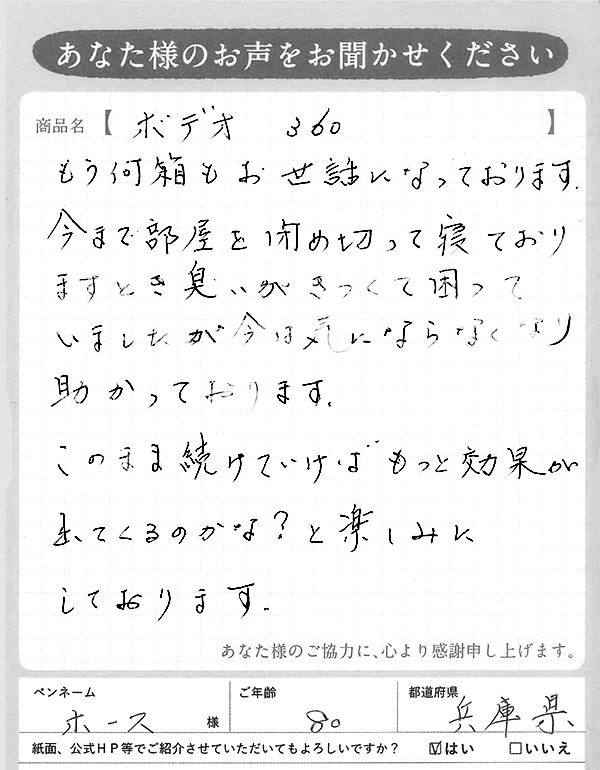 あなた様のお声をお聞かせください
商品名【 ボデオ 360 】
もう何箱もお世話になっております.
今まで部屋を閉め切って寝ており
ますとき臭いがきつくて困って
いましたが今は気にならなくなり
助かっております.
このまま続けていけばもっと効果が
出てくるのかな?と楽しみに
しております.
あなた様のご協力に、心より感謝申し上げます。
ペンネーム ホース 様
ご年齢 80
都道府県 兵庫県
紙面、公式HP等でご紹介させていただいてもよろしいですか? ☑はい □いいえ